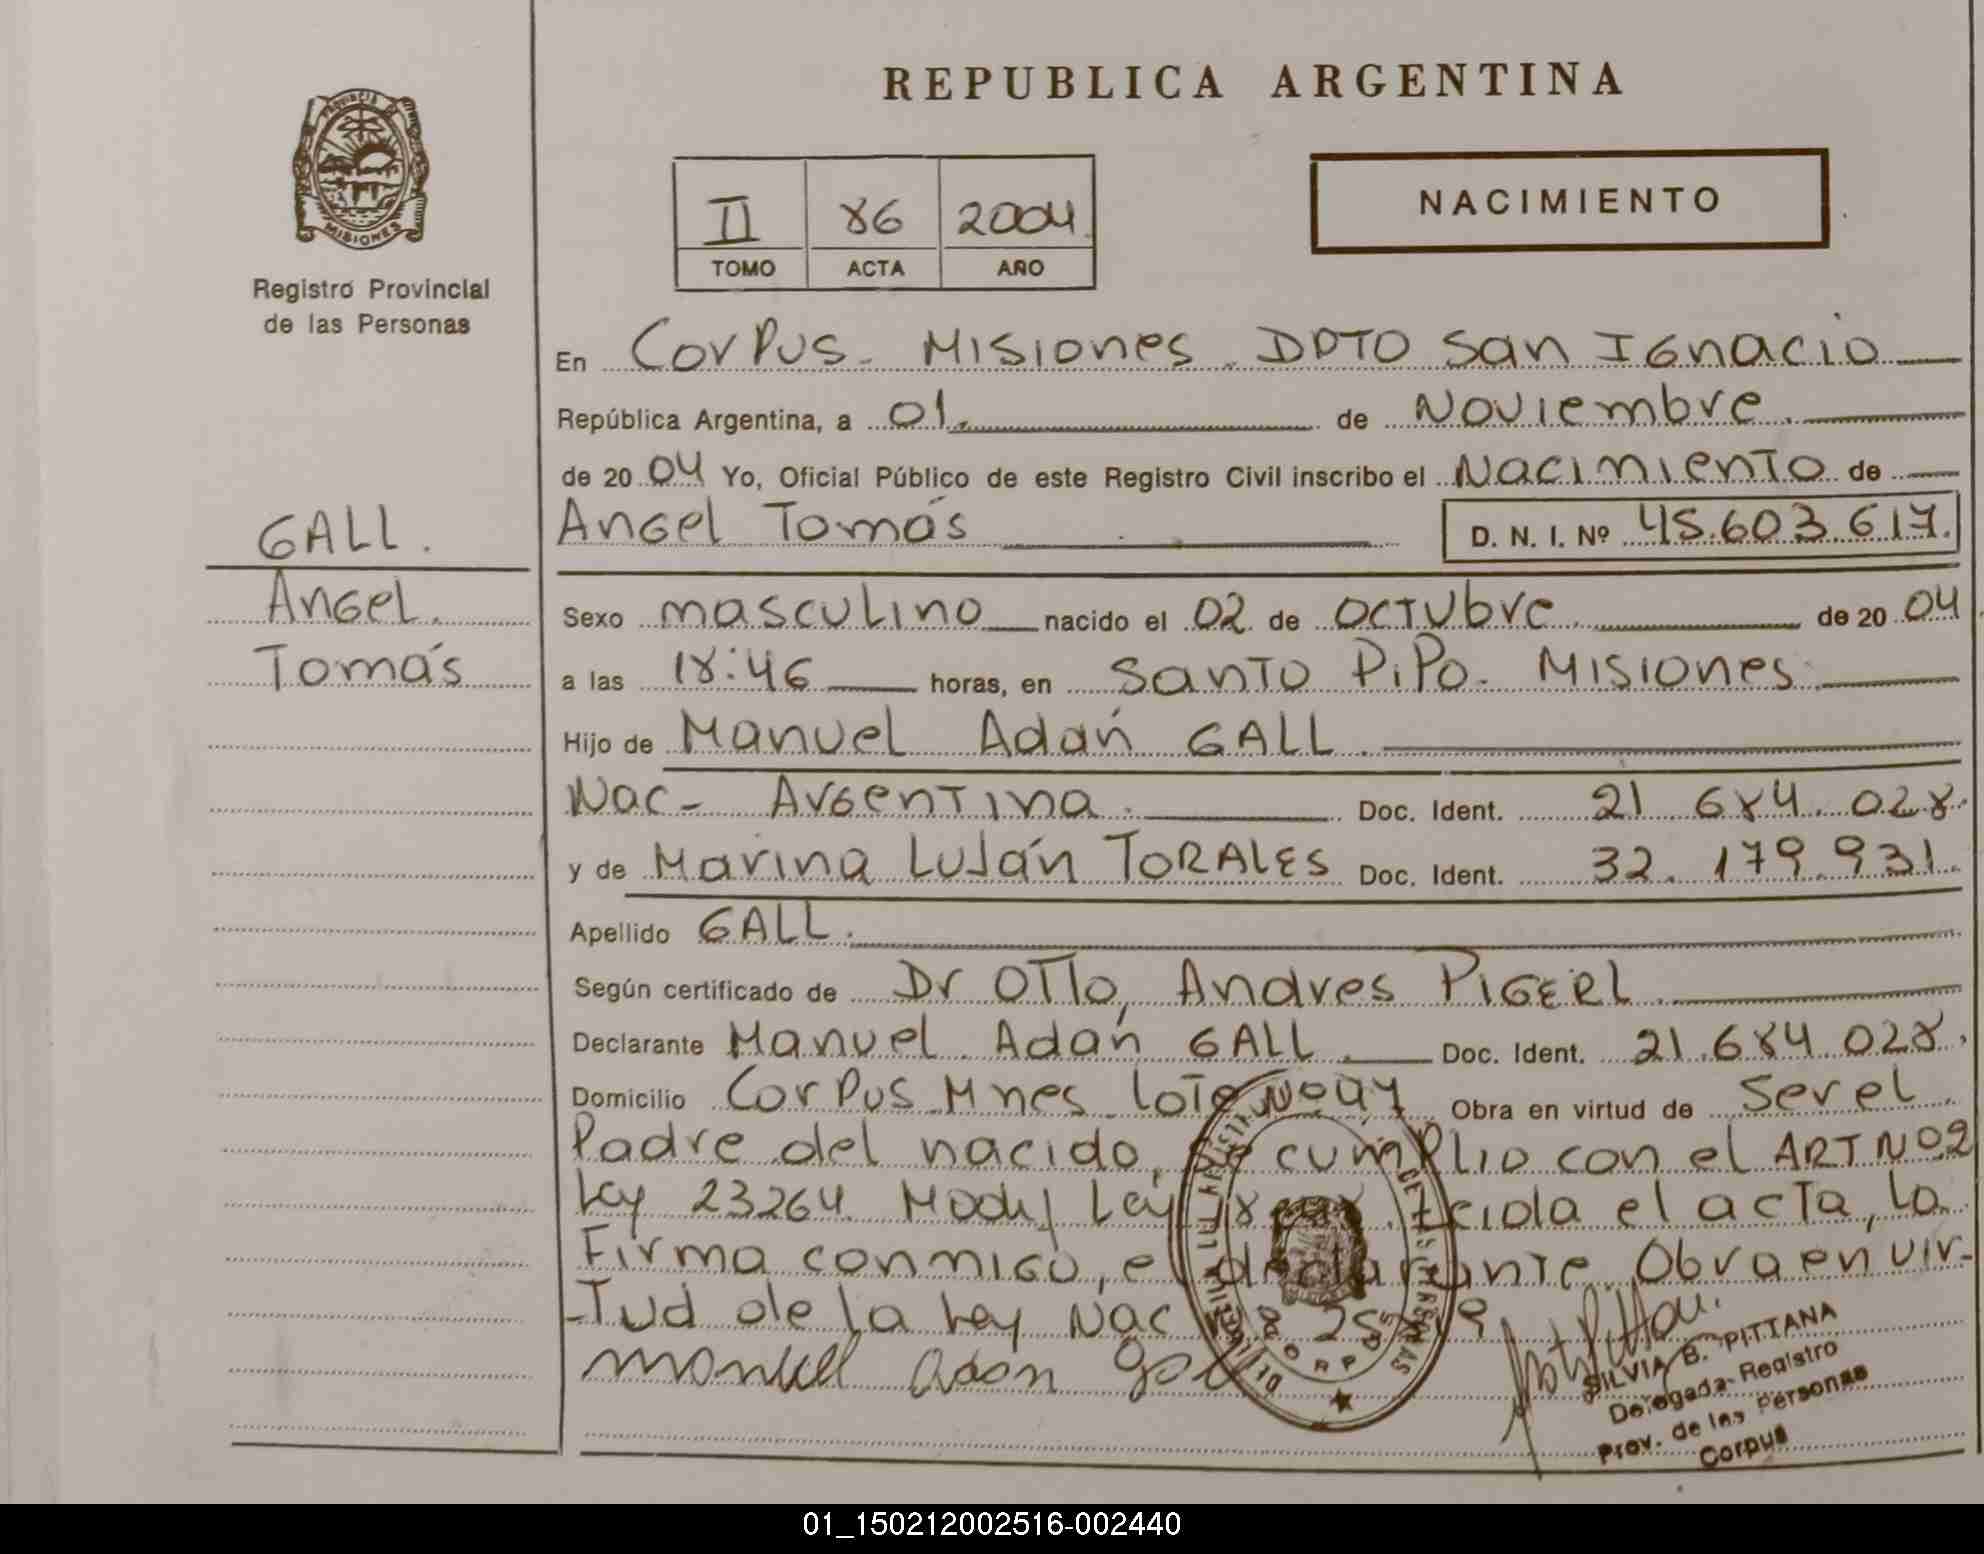 REPUBLICA ARGENTINA
PROVINCIA DE
MISIONES
Registro Provincial
de las Personas
II 86 2004
TOMO ACTA AÑO
NACIMIENTO
En Corpus - Misiones. DPTO San Ignacio
República Argentina, a 01. de Noviembre.
de 20 04 Yo, Oficial Público de este Registro Civil inscribo el Nacimiento de
GALL.
Angel Tomás D. N. I. Nº 45.603.617.
Angel.
Tomás
Sexo masculino nacido el 02 de octubre de 20 04
a las 18:46 horas, en Santo Pipo. Misiones
Hijo de Manuel Adán GALL.
Nac- Argentina. Doc. Ident. 21.684.028.
y de Marina Luján TORALES Doc. Ident. 32.179.931.
Apellido GALL.
Según certificado de Dr OTTO, Andres PIGERL
Declarante Manuel Adán GALL Doc. Ident. 21.684.028.
Domicilio Corpus Mnes Lote Obra en virtud de Ser el
Padre del nacido, Se cumplio con el ART Nº 2
Ley 23264. Modif Ley Leida el acta, la
Firma conmigo, el declarante. Obra en vir-
-Tud de la Ley Nac
Manuel Adan Gal
SILVIA B. PITTANA
Delegada Registro
Prov. de las Personas
Corpus
01_150212002516-002440